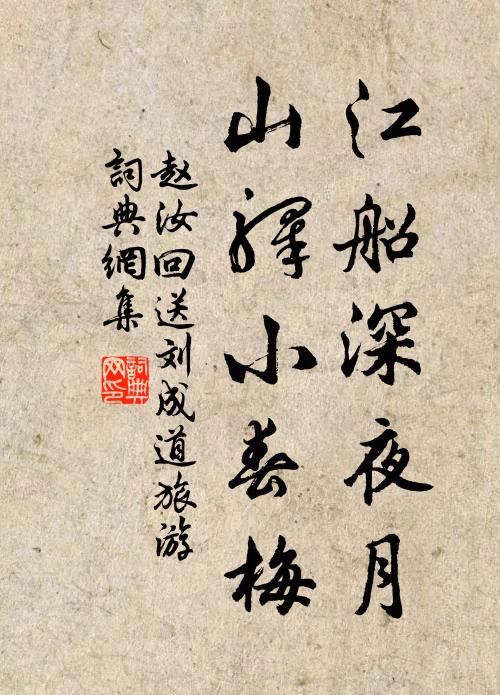 江船深夜月
山驛小春梅
赵汝回送刘成道旅游
詞典網集
詞典
网印